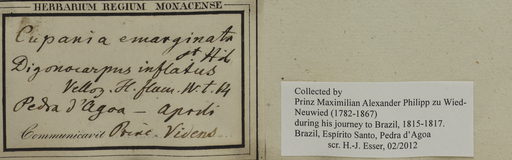 HERBARIUM REGIUM MONACENSE
Cupania emarginata
St Hil
Digonocarpus inflatus
Velloz. Fl. flum. IV. t. 14
Pedra d'Agoa — Aprili
Communicavit Princ. Videns...
Collected by
Prinz Maximilian Alexander Philipp zu Wied-
Neuwied (1782-1867)
during his journey to Brazil, 1815-1817.
Brazil, Espírito Santo, Pedra d'Agoa
scr. H.-J. Esser, 02/2012